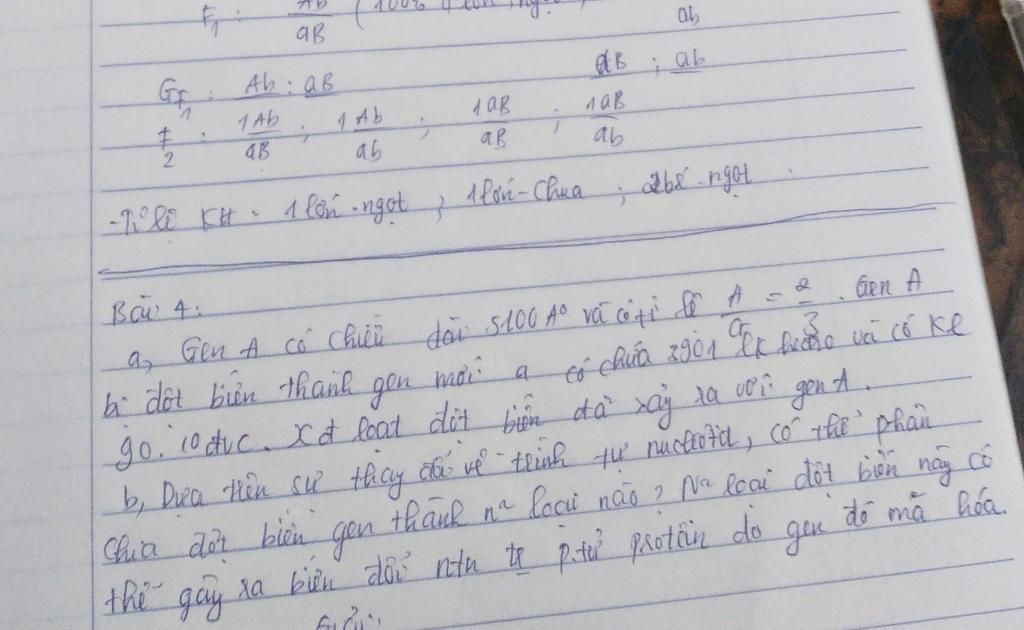 F1 : Ab/aB (100%
ab
GF1 : Ab ; aB aB ; ab
F2 : 1Ab/aB ; 1Ab/ab ; 1aB/aB ; 1aB/ab
- Tỉ lệ KH = 1 lớn-ngọt ; 1 lớn-chua ; 2bé-ngọt
Bài 4:
a, Gen A có chiều dài 5100 A° và có tỉ lệ A/G = 2/3. Gen A
bị đột biến thành gen mới a có chứa 3901 lk hiđro và có Kl
90.10 đvc. Xđ loại đột biến đã xảy ra với gen A.
b, Dựa trên sự thay đổi về trình tự nucleotit, có thể phân
chia đột biến gen thành n~ loại nào? N~ loại đột biến này có
thể gây ra biến đổi ntn tr p.tử protein do gen đó mã hóa.
Giải: